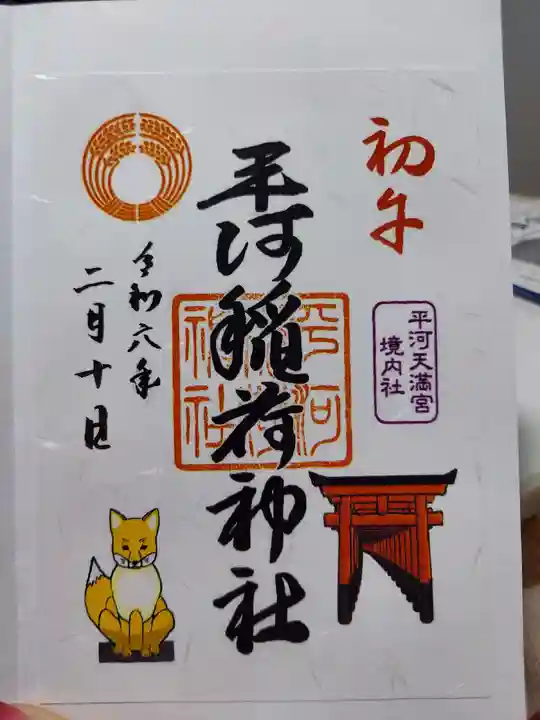 初午
平河天満宮
境内社
平河稲荷神社
平河
稲荷
神社
令和六年
二月十日